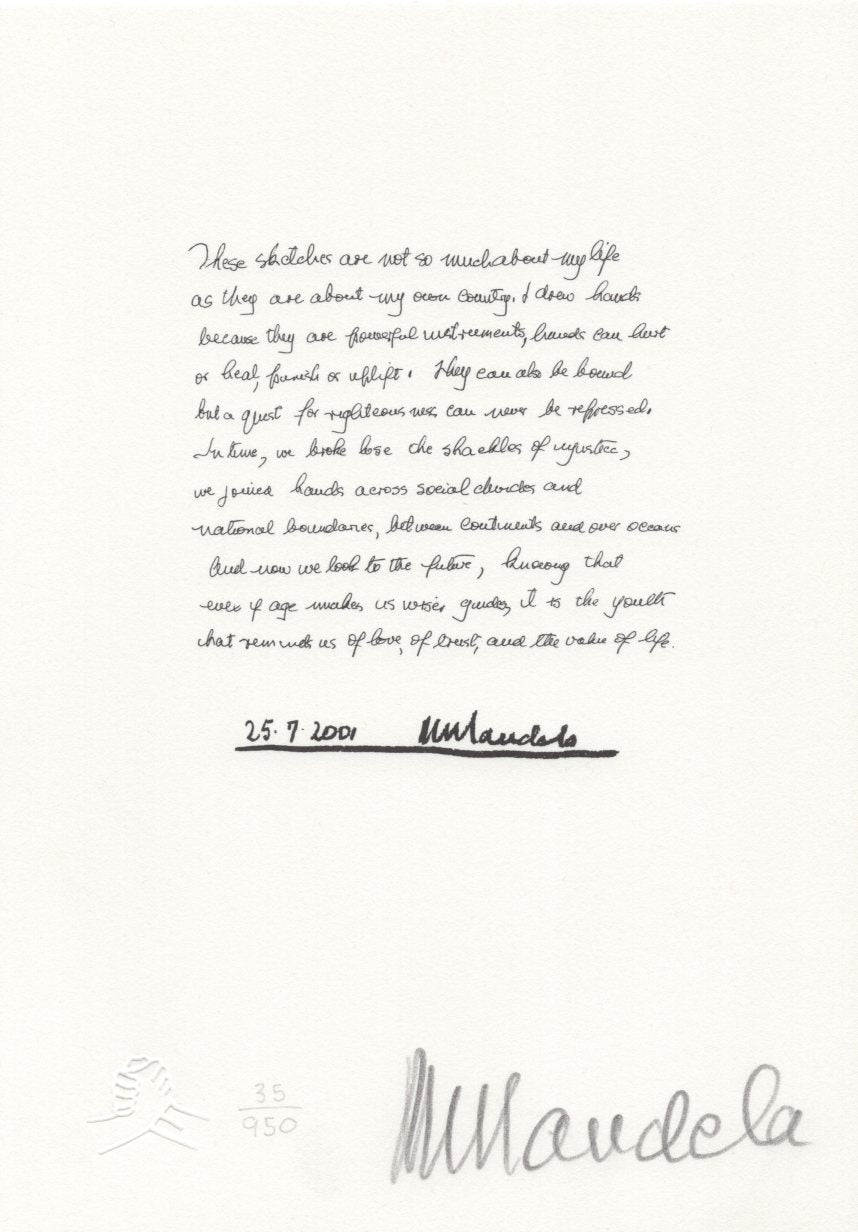 These sketches are not so much about my life
as they are about my own country. I drew hands
because they are powerful instruments, hands can hurt
or heal, punish or uplift. They can also be bound
but a quest for righteousness can never be repressed.
In time, we broke lose the shackles of injustice,
we joined hands across social divides and
national boundaries, between continents and over oceans
And now we look to the future, knowing that
even if age makes us wiser guides, it is the youth
that reminds us of love, of trust, and the value of life.
25.7.2001 NMandela
35
950
NMandela